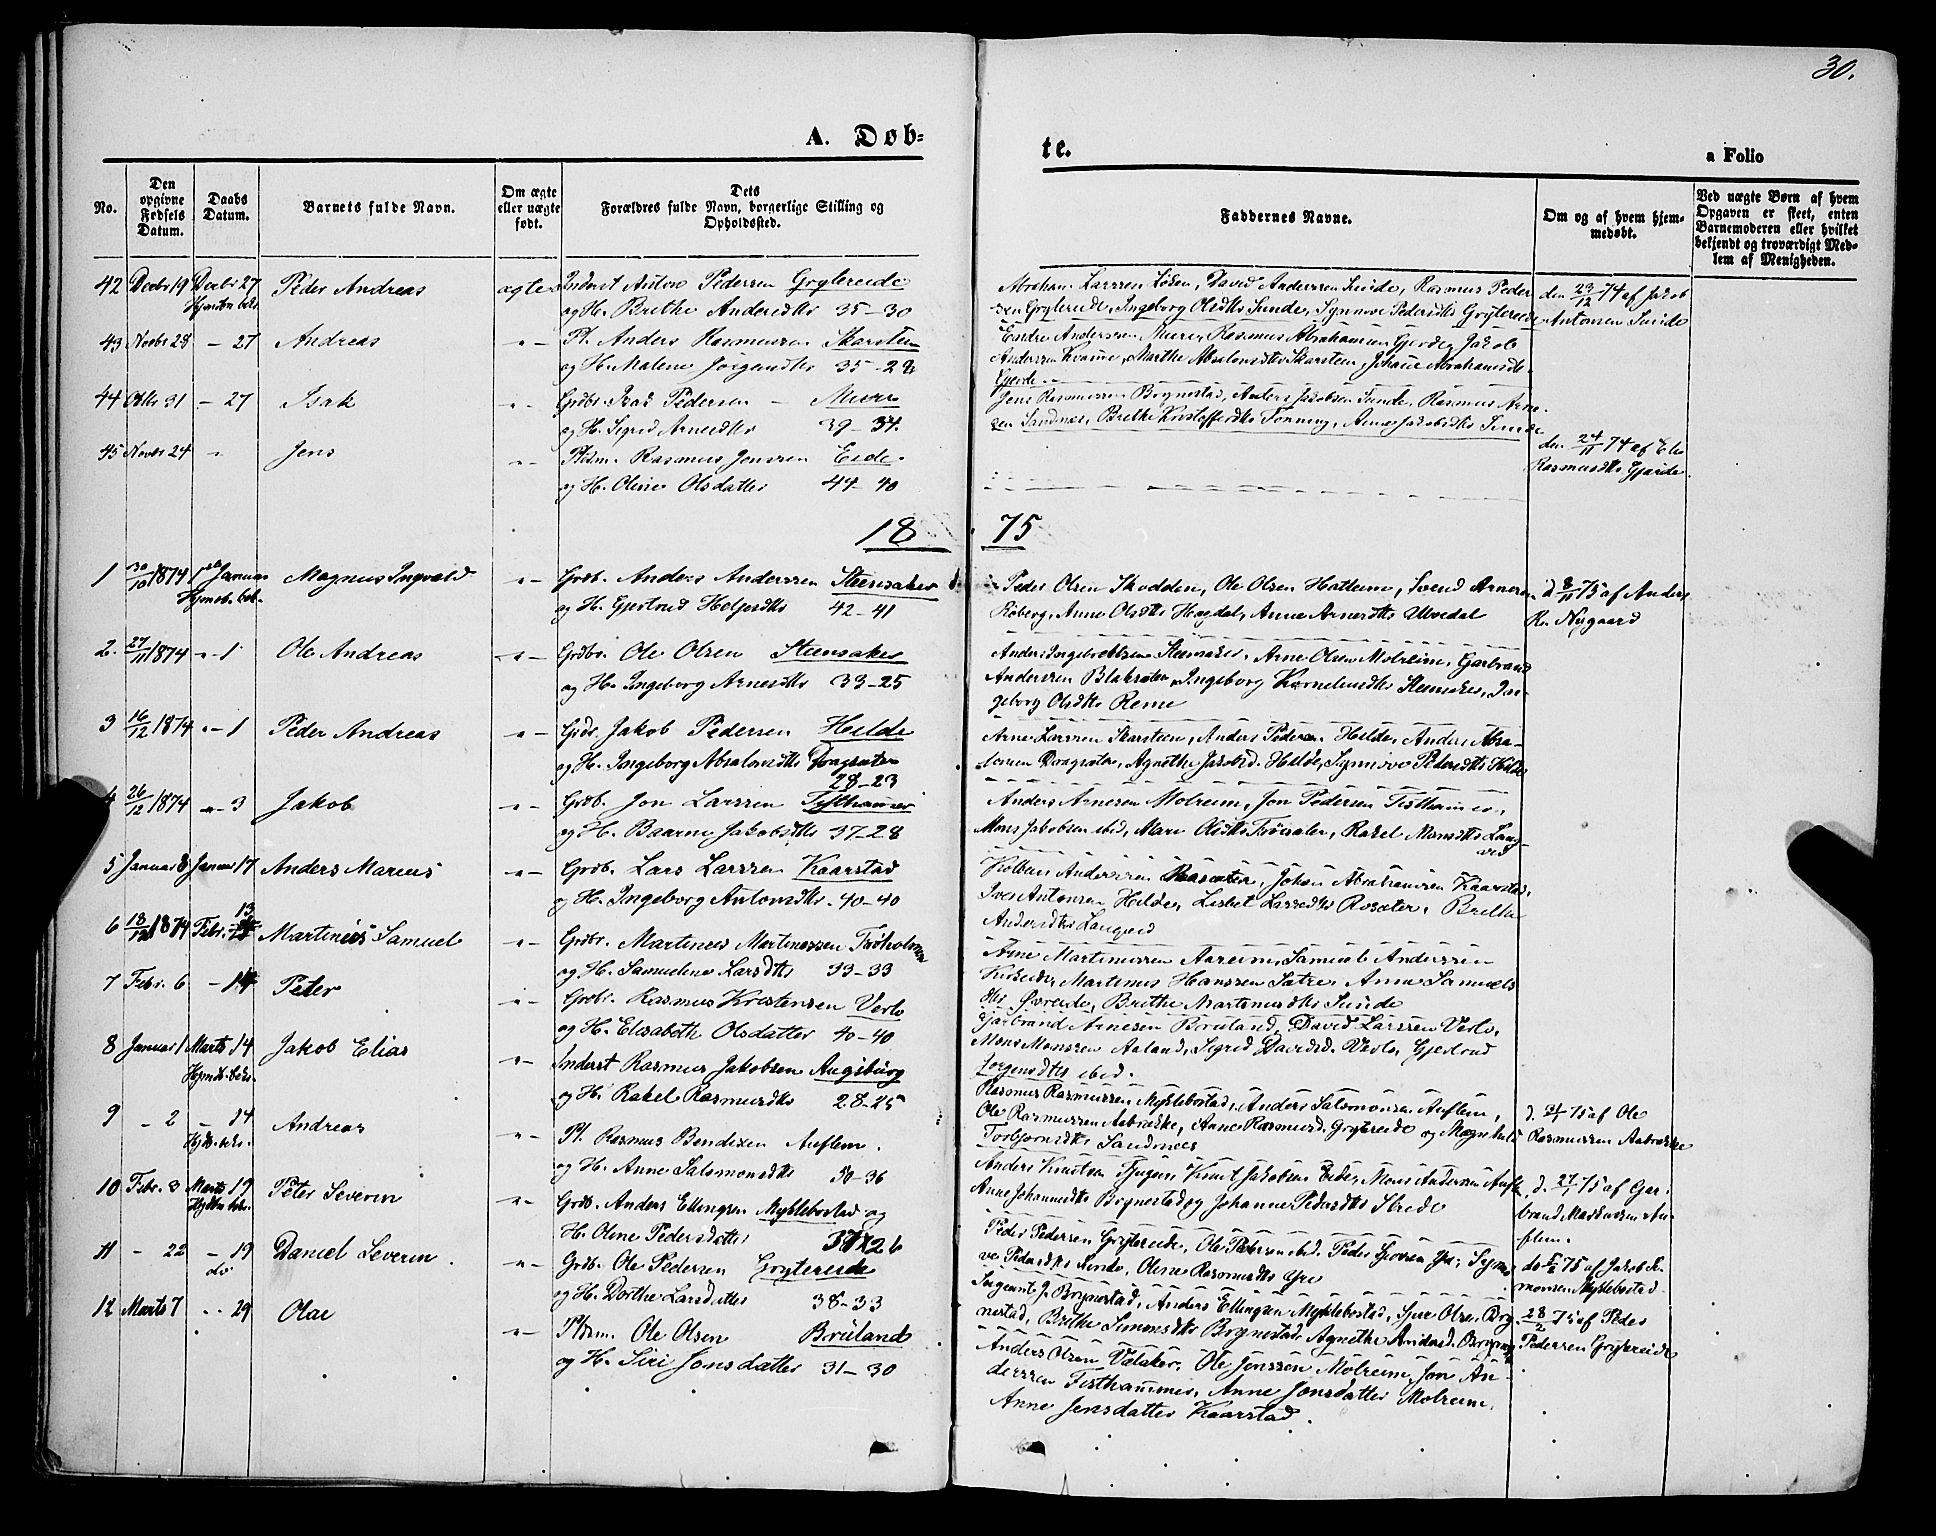 30.
A. Døb-
te.
a Folio
No.
Den opgivne Fødsels Datum.
Daabs Datum.
Barnets fulde Navn.
Om ægte eller uægte født.
Dets Forældres fulde Navn, borgerlige Stilling og Opholdssted.
Faddernes Navne.
Om og af hvem hjemmedøbt.
Ved uægte Børn af hvem Opgaven er skeet, enten Barnemoderen eller hvilket bekjendt og troværdigt Medlem af Menigheden.
42 Decbr 19 Decbr 27 Peder Andreas ægte Inderst Pedersen Grytereide
og H. Brithe Andersdtr 35-30
Abraham Larssen, David Andersen Sunde, Rasmus Peder
sen Grytereide, Ingeborg Olsdtr Sunde, Synnøve Pedersdtr Grytereide
den 23/12 74 af Jakob
Antonsen Sunde
43 Novbr 28 - 27 Andreas "- Pl. Anders Rasmussen Skarsteen
og H. Malene 35-28
Andersen, Rasmus Abrahamsen Gjerde, Jakob
Andersen, Marthe Absalonsdtr Skarsteen, Abrahamsdr
Gjerde
44 Oktbr 31 - 27 Isak "- Grdbr. Pedersen -
og H. Sigrid Arnesdtr 39-34
Jens Rasmussen Brynestad, Anders Jakobsen Sunde, Rasmus Arne-
sen Sandnes, Brithe Kristoffersdtr Tonning, Jakobsdtr Sunde
45 Novbr 24 " Jens "- Rasmus Jonssen Eide
og H. Oline Olsdatter 44-40
den 24/11 74 af
Rasmusdtr Gjærde
18 75
1 30/10 1874 1 Januar Magnus Ingvald "- Grdb. Anders Anderssen Steensaker
og H. Gjertrud Heljesdtr 42-41
Peder Olsen Skodden, Ole Olsen Hatlem, Svend Arnesen
Røberg, Anne Olsdtr Hagdal, Anne Arnesdtr Ulvedal
af Anders
R. Nygaard
2. 27/11 1874 "-1 Ole Andreas "- Grdbr. Ole Olsen Steensaker
og H. Ingeborg Arnesdtr 33-25
Anders Ingebretsen Steensaker, Arne Olsen Molreim, Garbrand
Anderssen Blaksæter, Ingeborg Kornelsdtr Steensaker, In-
geborg Olsdtr Reme
3 16/12 1874 "-1 Peder Andreas "- Grdbr. Jakob Pedersen Hilde
og H. Ingeborg Absalonsdtr Dragsæter
28-23
Arne Larssen Skarsteen, Anders Pedersen Hilde, Anders Absa-
lonsen Dragsæter, Agnethe Jakobsd. Hilde, Synnøve Pedersdtr Hilde
4 26/12 1874 "-3 Jakob "- Grdb. Jon Larssen Tisthammer
og H. Baarni Jakobsdtr 37-28
Anders Arnesen Molreim, Jon Pedersen Tisthammer,
Mons Jakobsen ibid, Mari Olsdtr, Rakel Monsdtr Lang-
5 Januar 8 Januar 17 Anders Marius "- Grdb. Lars Larssen Kaarstad
og H. Ingeborg Antonsdtr 40-40
Kolbein Anderssen, Johan Abrahamsen Kaarstad,
Iver Antonsen Hilde, Lisbet Larsdtr Rosæter, Brithe
Andersdtr
6 18/12 1874 Febr. 13 Martinus Samuel "- Grdbr. Martinus Martinussen Trøholmen
og H. Samueline Larsdtr 33-33
Arne Martinussen Aareim, Samuel Anderssen
Martinus Hanssen Sætre, Anne Samuels
dtr, Brithe Martinusdtr Sunde
7 Febr. 6 - 14 Peter "- Grdbr. Rasmus Kristensen Verlo
og H. Elisabeth Olsdatter 40-40
Garbrand Arnesen Bruland, David Larssen Verlo,
Mons Monssen Aaland, Sigrid Davidsd. Verlo, Gjertrud
ibid.
8 Januar 1 Marts 14 Jakob Elias "- Inderst Rasmus Jakobsen Augsburg
og H. Rakel Rasmusdtr 28-25
Rasmus Rasmussen Myklebostad, Anders Salomonsen Auflem,
Ole Rasmussen Aabrække, Anne Rasmusd. Gryttereide og Magnhild
Torbjørnsdtr Sandnes
af Ole
Rasmussen Aabrække
9 - 2 - 14 Andreas "- Pl. Rasmus Bendixen Auflem.
og H. Anne Salomonsdtr 50-36
Anders Knutsen, Knut Jakobsen Eide, Mons Andersen Aufle
Anne Johannesdtr Brynestad og Johanne Pedersdtr
d. 27/1 75 af Gar-
brand Markussen Au-
flem.
10 Febr. 3 Marts 19 Peter Severin "- Grdb. Anders Ellingsen Myklebostad og
H. Oline Pedersdatter
Peder Pedersen Gryttereide, Ole Pedersen ibid. Peder
Pedersdtr Sunde, Oline Rasmusdtr
75 af Jakob
Myklebostad
11 - 22 - 19 Daniel Severin. "- Grdb. Ole Pedersen Gryttereide
do
og H. Dorthe Larsdatter 38-33
Sergeant J. Brynestad, Anders Ellingsen Myklebostad, Sjur Olsen Bry
nestad, Brithe Simonsdtr Brynestad, Agnethe
28/2 75 af Peder
Pedersen Gryttereide
12 Marts 7 " 29 Olai "- Pldsm. Ole Olsen Bruland
og H. Siri Jonsdatter 31-30
Anders Olsen Vælaker, Ole Jonssen Molreim, Jon An-
derssen Tisthammer, Anne Jonsdatter Molreim,
Anne Jensdatter Kaarstad.